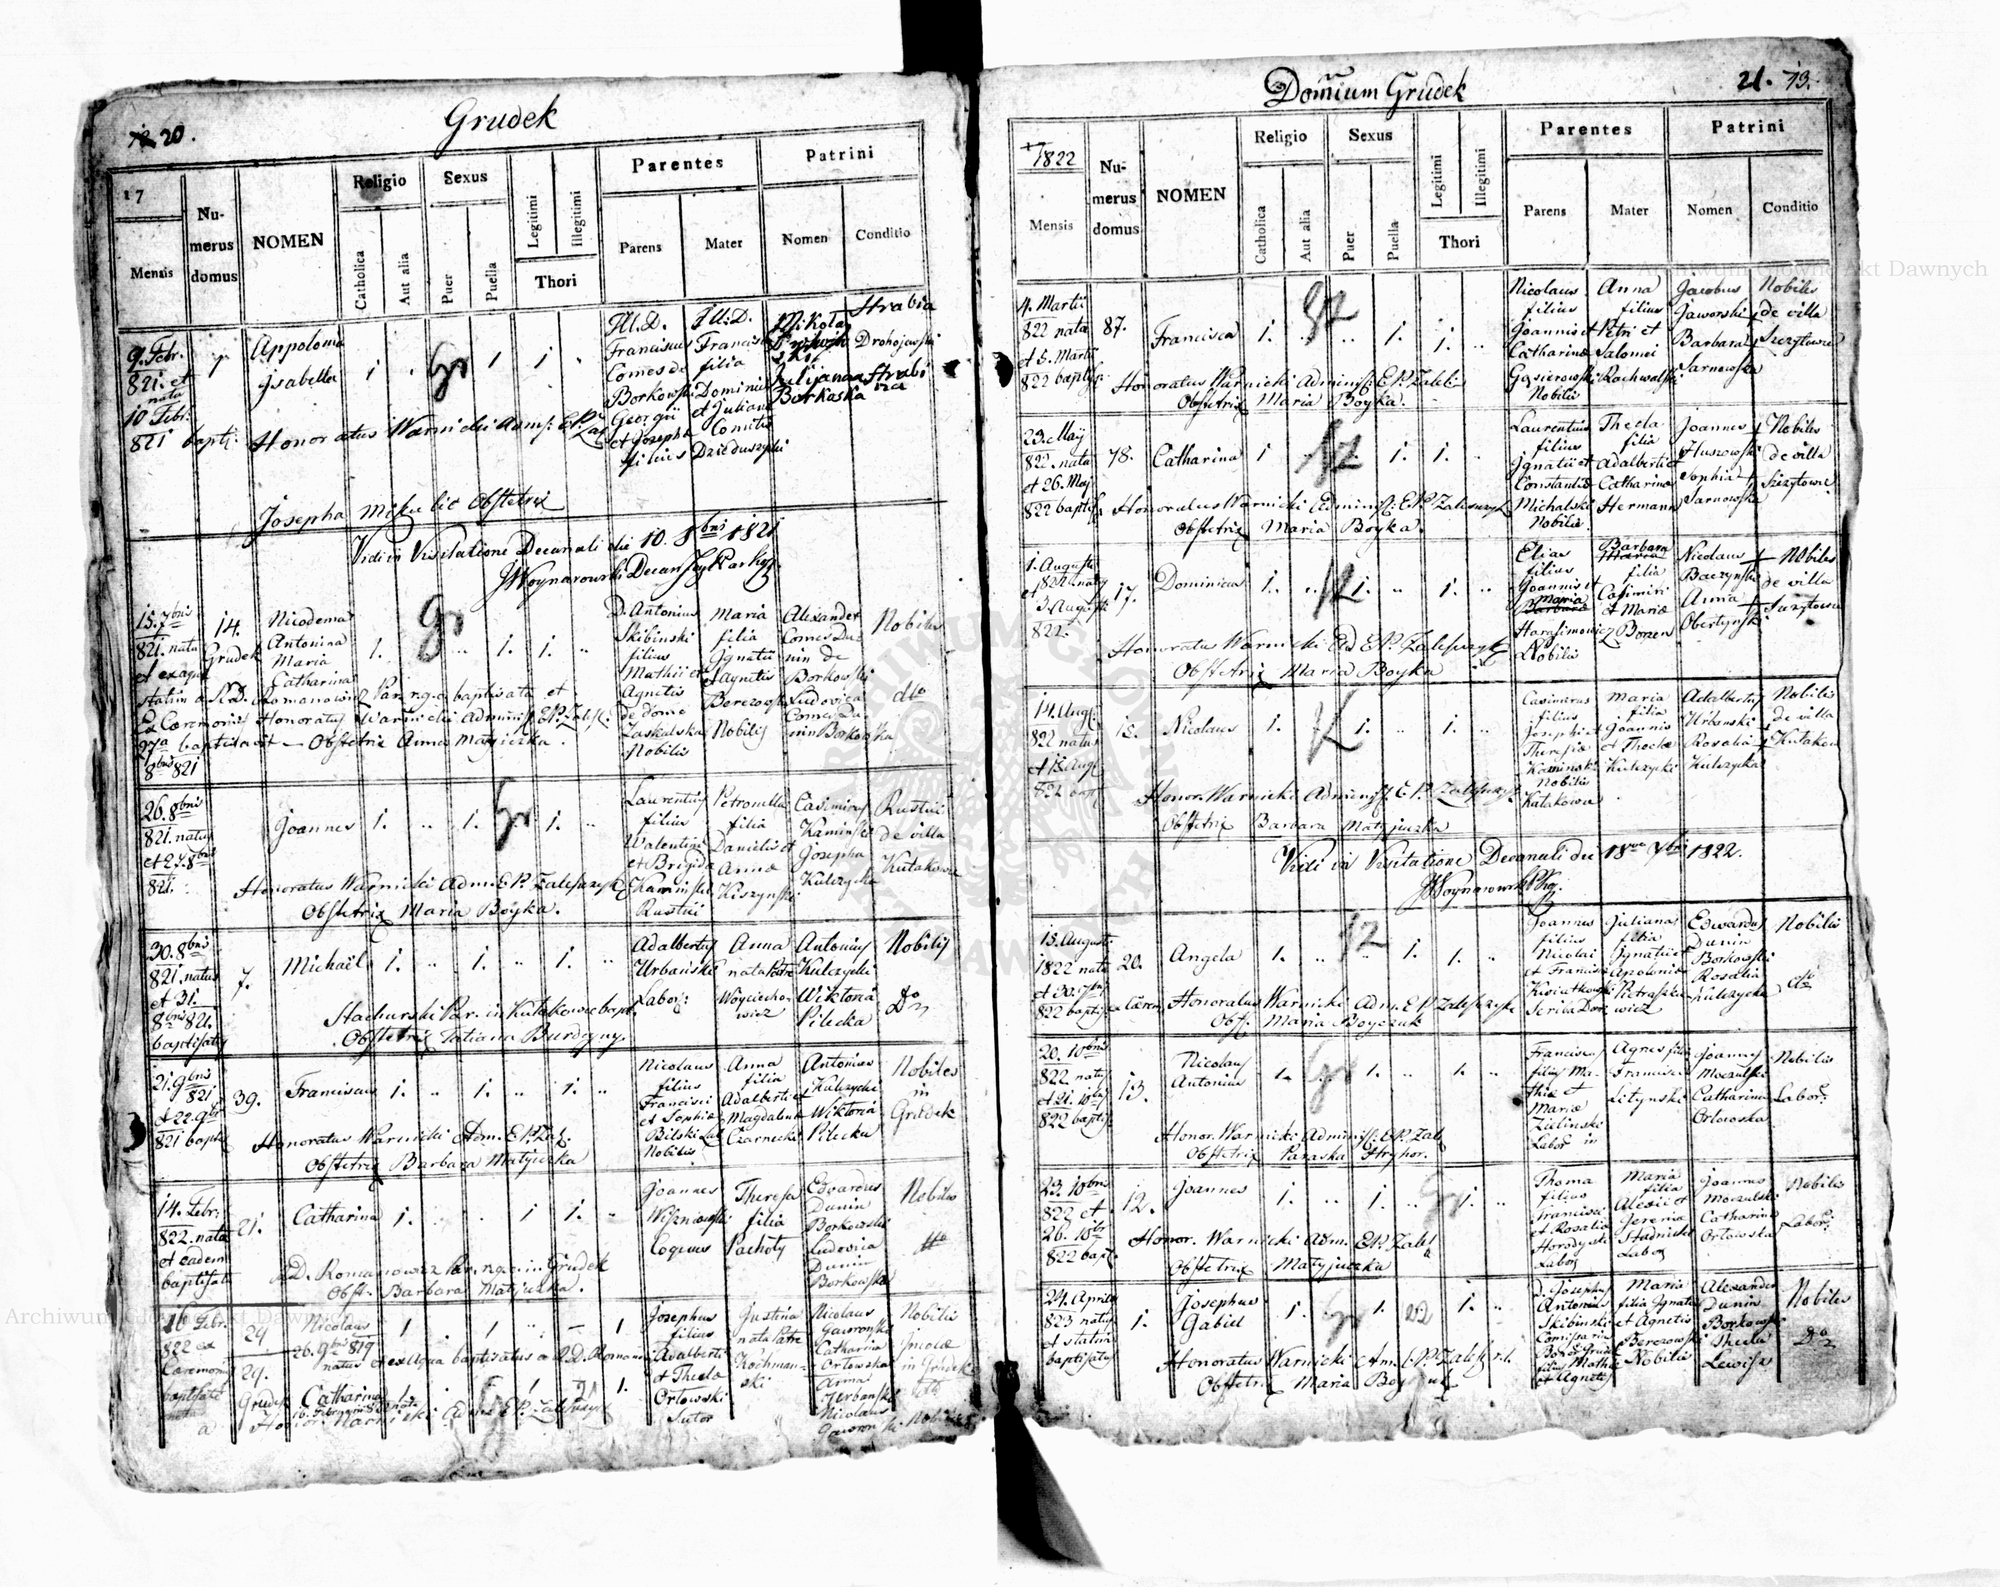 20.
Grudek
17
Mensis
Numerus domus
NOMEN
Religio
Catholica
Aut alia
Sexus
Puer
Puella
Legitimi
Illegitimi
Thori
Parentes
Parens
Mater
Patrini
Nomen
Conditio
9. Febr.
821. et
nata
10 Febr.
821 bapt:
Appolonia
Isabella
Ill. D.
Franciscus
Comes de
Borkowski
Georgii
et Josepha
filius
Ill. D.
Francisca
filia
Dominici
et Juliana
Comitis
Dzieduszycki
Mikołaj
Julijanna
Borkoska
Hrabia
Drohojowski
Hrabi
na
Honoratus Warnicki Adm: E. P. Zal
Josepha Mikulic Obstetrix
Vidi in Visitatione Decanali die 10. 8bris 1821
JWoynarowski Decan
15. 7bris
821. nata
14.
Grudek
Nicodema
Antonina
Maria
Catharina
D. Antonius
Skibinski
filius
Mathiæ et
Agnetis
de domo
Zaskalska
Nobilis
Maria
filia
Ignatii
et Agnetis
Berezowski
Nobilis
Alexander
Comes Du
nin de
Borkowski
Ludovica
Comes Du
nin Borkowska
Nobiles
dto
statim a R. D. Romanowicz Par. r. g. c. baptisata et
Ex Ceremoniis Honoratus Warnicki Adminis: E. P. Zalesz:
27a baptisavit — Obstetrix Anna Matyiczka.
8bris 821
26. 8bris
821. natus
et 27. 8bris
821.
Joannes
Laurentius
filius
Valentini
et Brigida
Kaminski
Rustici
Petronella
filia
Danielis et
Anna
Kiszynski
Casimirus
Kaminski
Josepha
Kulczycka
Rustici
de villa
Kułakowce
Honoratus Warnicki Adm. E. P. Zaleszczyk
Obstetrix Maria Boyka.
30. 8bris
821. natus
et 31.
8bris 821.
baptisatus
7.
Michaël
Adalbertus
Urbański
Labor:
Anna
nata Patre
Woyciecho-
wicz
Antonius
Kulczycki
Wiktoria
Pilecka
Nobilis
Do
Stachurski Par. in Kułakowce bapt.
Obstetrix Tatiana Burdyny.
21. 9bris
821
et 22. 9bris
821 bapt
39.
Franciscus
Nicolaus
filius
Francisci
et Sophiæ
Bilski Lab
Nobilis
Anna
filia
Adalberti et
Magdalena
Czarnecki
Antonius
Kulczycki
Wiktoria
Pilecka
Nobiles
in
Grudek
Honoratus Warnicki Adm. E. P. Zal.
Obstetrix Barbara Matyiczka
14. Febr:
822. nata
et eadem
baptisata
21.
Catharina
Joannes
Wiszniowski
Coquus
Theresa
filia
Pachoty
Edvardus
Dunin
Borkowski
Ludovica
Dunin
Borkowska
Nobiles
dto
D. Romanowicz Par. r. g. c. in Grudek
Obst. Barbara Matyiczka.
16 Febr.
822 ex
Ceremoni
baptisati
29
29.
Grudek
Nicolaus
26. 9bris 819
natus et ex aqua baptisatus a R. D. Roman
Catharina
Honor. Warnicki Adm. E. P. Zaleszczyk
Josephus
filius
Adalberti
et Thecla
Orłowski
Sutor
Justina
nata Patre
Kochman-
ski
Nicolaus
Gawronski
Catharina
Orłowska
Anna
Urbańska
Nicolaus
Gawronski
Nobilis
Incolæ
in Grudek
Nobiles
Dominium Grudek
21. 13.
1822
Mensis
Numerus domus
NOMEN
Religio
Catholica
Aut alia
Sexus
Puer
Puella
Legitimi
Illegitimi
Thori
Parentes
Parens
Mater
Patrini
Nomen
Conditio
4. Martii
822 nata
et 5. Martii
822 baptis:
87.
Francisca
Nicolaus
filius
Joannis et
Catharinæ
Gąsierowski
Nobilis
Anna
filius
Petri et
Salomei
Rachwalski
Jacobus
Jaworski
Barbara
Sarnowska
Nobiles
de villa
Szczytowce
Honoratus Warnicki Adminis: E. P. Zalesz:
Obstetrix Maria Boyka.
23. May
822. nata
et 26. May
822 baptis
78.
Catharina
Laurentius
filius
Ignatii et
Constantiæ
Michalski
Nobilis
Thecla
filia
Adalberti et
Catharinæ
Hermann
Joannes
Huszowski
Sophia
Sarnowska
Nobiles
de villa
Szczytowce
Honoratus Warnicki Adminis: E. P. Zaleszczyk
Obstetrix Maria Boyka.
1. Augusti
1822 nata
et
3 Augusti
822.
17.
Dominica
Elias
filius
Joannis et
Maria
Harasimowicz
Nobilis
Barbara
filia
Casimiri
et Mariæ
Nicolaus
Baczynski
Anna
Obertynska
Nobiles
de villa
Szczytowce
Honoratus Warnicki Ad E. P. Zaleszczyk
Obstetrix Maria Boyka
14. Aug.
822 natus
et 18. Aug
822 bapt
Nicolaus
Casimirus
filius
Josephi et
Theresiæ
Kaminski
Nobilis
Kułakowce
Maria
filia
Joannis
et Theclæ
Kulczycki
Adalbertus
Urbanski
Rosalia
Kulczycka
Nobilis
de villa
Kułakow
Honor. Warnicki Adminis: E. P. Zaleszczyk
Obstetrix Barbara Matyjuczka
Vidi in Visitatione Decanali die 18va 7bris 1822.
JWoynarowski
15. August.
1822 nata
et 30. 7bris
822 baptis
20.
Angela
Joannes
filius
Nicolai
et Francisca
Kwiatkowski
Scriba Dom
Juliana
filia
Ignatii et
Apolonia
Pietraszke-
wicz
Edwardus
Dunin
Borkowski
Rosalia
Kulczycka
Nobilis
dto
ex Cærem. Honoratus Warnicki Adm. E. P. Zaleszczyk
Obst. Maria Boyczuk
20. 10bris
822 natus
et 21. 10bris
822 baptis.
13.
Nicolaus
Antonius
Franciscus
filius Ma-
thiæ et
Mariæ
Zielinski
Labor in
Agnes filia
Francisci
Litynski
Joannes
Moczulski
Catharina
Orłowska
Nobilis
Labor:
Honor. Warnicki Adminis: E. P. Zal
Obstetrix Paraska Hryhor.
23. 10bris
822 et
26. 10br
822 bapt.
12.
Joannes
Thoma
filius
Francisci
et Rosalia
Horodyski
Labor
Maria
filia
Alexii et
Jerema
Stadnicki
Labor
Joannes
Moczulski
Catharina
Orłowska
Nobilis
Labor:
Honor. Warnicki Adm. E. P. Zal
Obstetrix Matyjuczka
24. Aprilis
823 natus
et statim
baptisatus
1.
Josephus
Gabiel
D. Josephus
Antonius
Skibinski
Comissarius
Bonor Grudek
filius Mathiæ
et Agnetis
Maria
filia Ignatii
et Agnetis
Berezowski
Nobilis
Alexander
Dunin
Borkowski
Thecla
Lewicka
Nobiles
Do
Honoratus Warnicki Adm. E. P. Zalesz. r. l.
Obstetrix Maria Boyczuk
Archiwum Główne Akt Dawnych
Archiwum Główne Akt Dawnych
ARCHIWUM GŁÓWNE AKT DAWNYCH